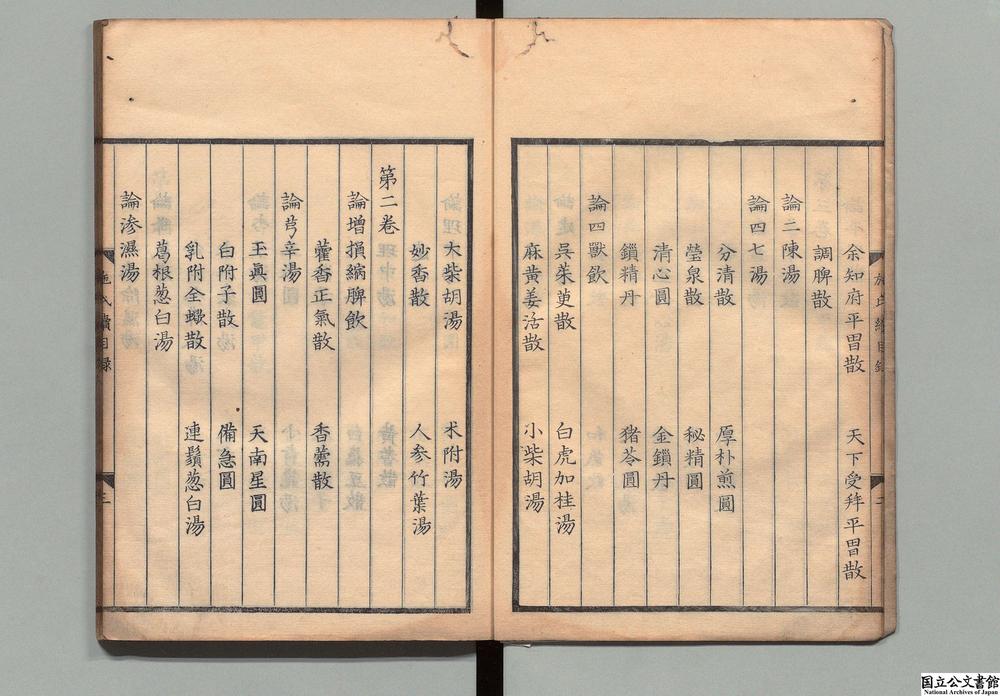 余知府平胃散　天下受拜平胃散
調脾散
論二陳湯
論四七湯
分清散　厚朴煎圓
瑩泉散　秘精圓
清心圓　金鎖丹
鎖精丹　猪苓圓
論四獸飲
呉茱萸散　白虎加桂湯
麻黄姜活散　小柴胡湯
大柴胡湯　朮附湯
妙香散　人参竹葉湯
第二卷
論增損縮脾飲
藿香正氣散　香薷散
論芎辛湯
玉真圓　天南星圓
白附子散　備急圓
乳附全蠍散　連鬚葱白湯
葛根葱白湯
論渗濕湯
施氏續目録
二
施氏續目録
三
国立公文書館
National Archives of Japan